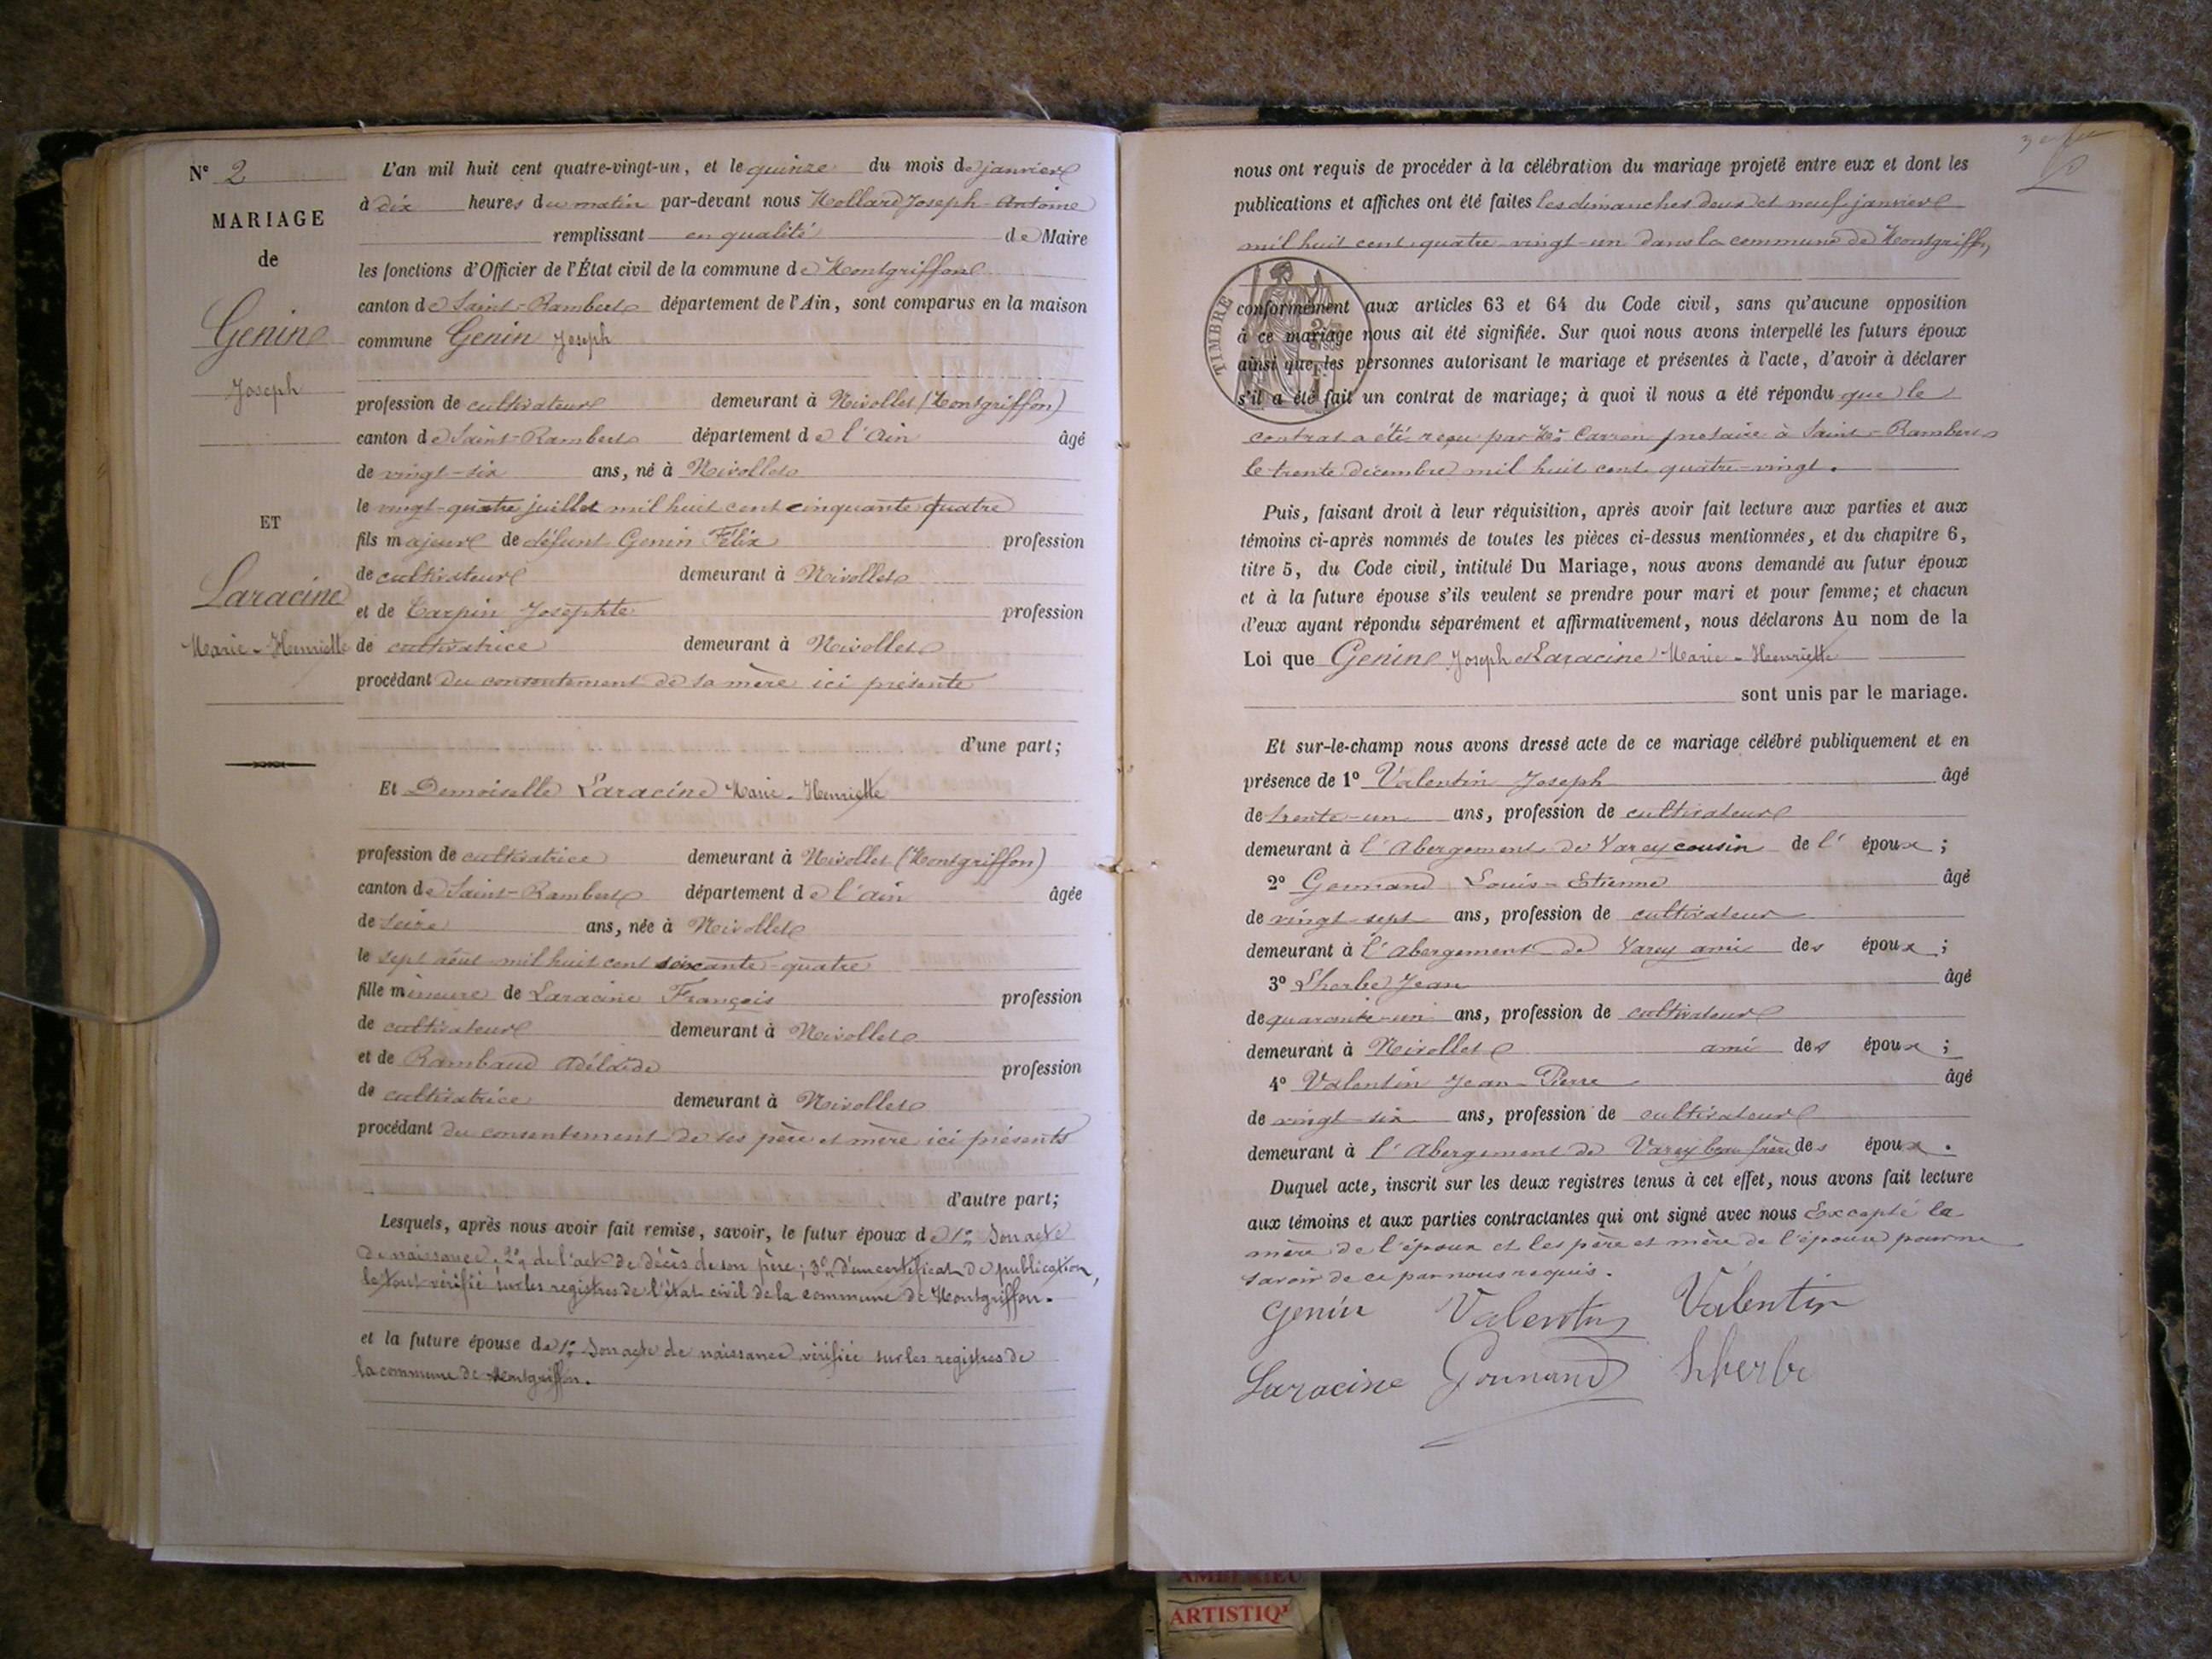 N° 2
MARIAGE
de
Genin
Joseph
ET
Laracine
Marie-Henriette
L'an mil huit cent quatre-vingt-un, et le quinze du mois de janvier
à dix heures du matin par-devant nous Hollard Joseph-Antoine
remplissant en qualité de Maire
les fonctions d'Officier de l'État civil de la commune de Montgriffon
canton de Saint-Rambert département de l'Ain, sont comparus en la maison
commune Genin Joseph
profession de cultivateur demeurant à Nivollet (Montgriffon)
canton de Saint-Rambert département de l'Ain âgé
de vingt-six ans, né à Nivollet
le vingt-quatre juillet mil huit cent cinquante quatre
fils majeur de défunt Genin Félix profession
de cultivateur demeurant à Nivollet
et de Carpin Josephte profession
de cultivatrice demeurant à Nivollet
procédant du consentement de sa mère ici présente
d'une part;
Et Demoiselle Laracine Marie-Henriette
profession de cultivatrice demeurant à Nivollet (Montgriffon)
canton de Saint-Rambert département de l'Ain âgée
de seize ans, née à Nivollet
le sept août mil huit cent soixante-quatre
fille mineure de Laracine François profession
de cultivateur demeurant à Nivollet
et de Rambaud Adélaïde profession
de cultivatrice demeurant à Nivollet
procédant du consentement de ses père et mère ici présents
d'autre part;
Lesquels, après nous avoir fait remise, savoir, le futur époux de 1° Son acte
de naissance; 2° de l'acte de décès de son père; 3° D'un certificat de publication,
le tout vérifié sur les registres de l'état civil de la commune de Montgriffon.
et la future épouse de 1° Son acte de naissance vérifiée sur les registres de
la commune de Montgriffon.
nous ont requis de procéder à la célébration du mariage projeté entre eux et dont les
publications et affiches ont été faites les dimanches deux et neuf janvier
mil huit cent quatre-vingt-un dans la commune de Montgriffon
TIMBRE
conformément aux articles 63 et 64 du Code civil, sans qu'aucune opposition
à ce mariage nous ait été signifiée. Sur quoi nous avons interpellé les futurs époux
ainsi que les personnes autorisant le mariage et présentes à l'acte, d'avoir à déclarer
s'il a été fait un contrat de mariage; à quoi il nous a été répondu que le
contrat a été reçu par Me Carron notaire à Saint-Rambert
le trente décembre mil huit cent quatre-vingt.
Puis, faisant droit à leur réquisition, après avoir fait lecture aux parties et aux
témoins ci-après nommés de toutes les pièces ci-dessus mentionnées, et du chapitre 6,
titre 5, du Code civil, intitulé Du Mariage, nous avons demandé au futur époux
et à la future épouse s'ils veulent se prendre pour mari et pour femme; et chacun
d'eux ayant répondu séparément et affirmativement, nous déclarons Au nom de la
Loi que Genin Joseph et Laracine Marie-Henriette
sont unis par le mariage.
Et sur-le-champ nous avons dressé acte de ce mariage célébré publiquement et en
présence de 1° Valentin Joseph âgé
de trente-un ans, profession de cultivateur
demeurant à l'Abergement de Varey cousin de l'époux;
2° Gonnand Louis-Etienne âgé
de vingt-sept ans, profession de cultivateur
demeurant à l'Abergement de Varey ami des époux;
3° Lherbe Jean âgé
de quarante-un ans, profession de cultivateur
demeurant à Nivollet ami des époux;
4° Valentin Jean-Pierre âgé
de vingt-six ans, profession de cultivateur
demeurant à l'Abergement de Varey beau frère des époux.
Duquel acte, inscrit sur les deux registres tenus à cet effet, nous avons fait lecture
aux témoins et aux parties contractantes qui ont signé avec nous Excepté la
mère de l'époux et les père et mère de l'épouse pour ne
savoir de ce par nous requis.
Genin Valentin Valentin
Laracine Gonnand Lherbe
ARTISTIQ